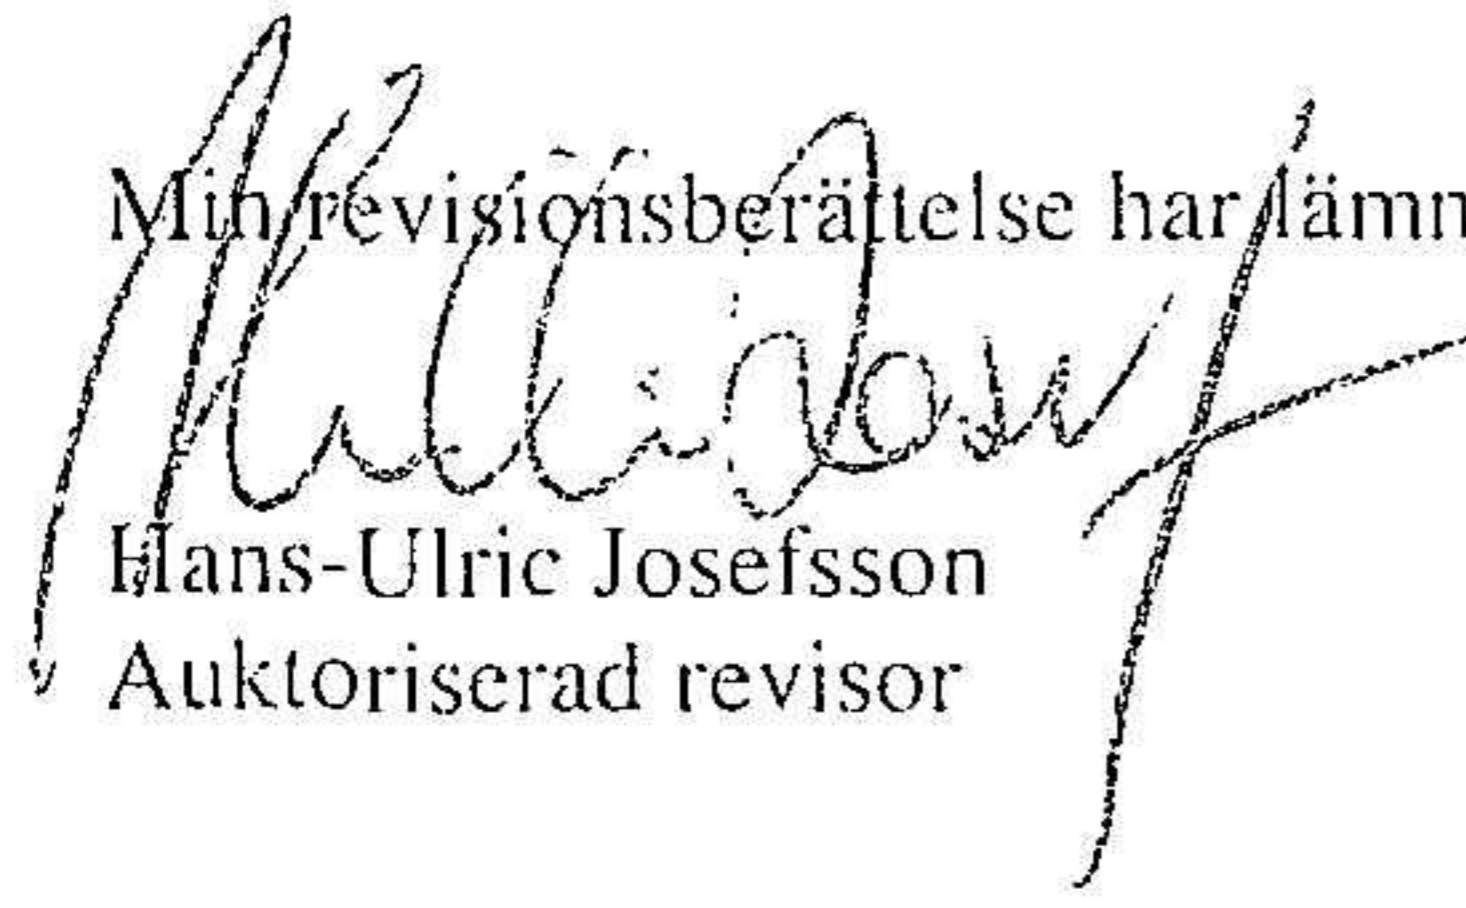 Min revisionsberättelse har lämn
Hans-Ulric Josefsson
Auktoriserad revisor